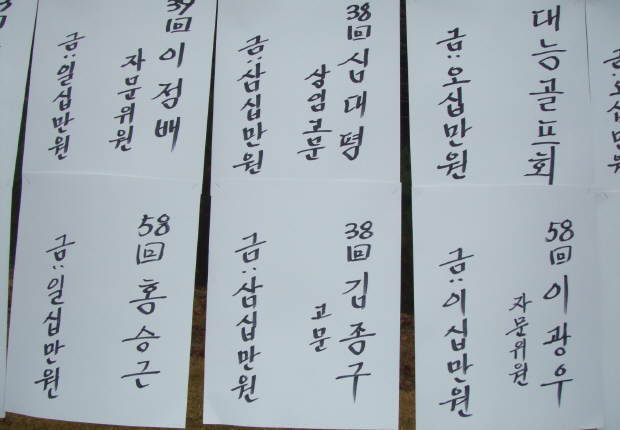 39回 이점배
자문위원
금:일십만원
38回 심대평
상임고문
금:삼십만원
대능골프회
금:오십만원
금:오십만원
58回 홍승근
금:일십만원
38回 김종구
고문
금:삼십만원
58回 이광우
자문위원
금:이십만원